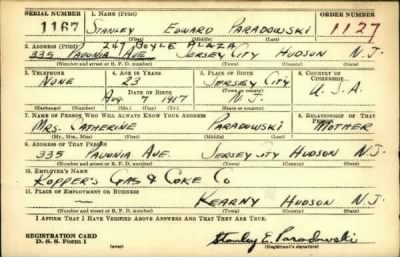 SERIAL NUMBER 1. NAME (Print) ORDER NUMBER
1167 STANLEY EDWARD PARADOWSKI 1127
(First) (Middle) (Last)
2. ADDRESS (Print) 247 BOYLE PLAZA
335 PAVONIA AVE JERSEY CITY HUDSON N.J.
(Number and street or R. F. D. number) (Town) (County) (State)
3. TELEPHONE 4. AGE IN YEARS 5. PLACE OF BIRTH 6. COUNTRY OF CITIZENSHIP
NONE 23 JERSEY CITY
DATE OF BIRTH (Town or county)
AUG 7 1917 N.J. U.S.A.
(Exchange) (Number) (Mo.) (Day) (Yr.) (State or country)
7. NAME OF PERSON WHO WILL ALWAYS KNOW YOUR ADDRESS 8. RELATIONSHIP OF THAT PERSON
MRS. CATHERINE PARADOWSKI MOTHER
(Mr., Mrs., Miss) (First) (Middle) (Last)
9. ADDRESS OF THAT PERSON
335 PAVONIA AVE. JERSEY CITY HUDSON N.J.
(Number and street or R. F. D. number) (Town) (County) (State)
10. EMPLOYER'S NAME
KOPPER'S GAS & COKE CO
11. PLACE OF EMPLOYMENT OR BUSINESS
— KEARNY HUDSON N.J.
(Number and street or R. F. D. number) (Town) (County) (State)
I AFFIRM THAT I HAVE VERIFIED ABOVE ANSWERS AND THAT THEY ARE TRUE.
REGISTRATION CARD
D. S. S. Form 1 (over) Stanley E. Paradowski
(Registrant's signature)